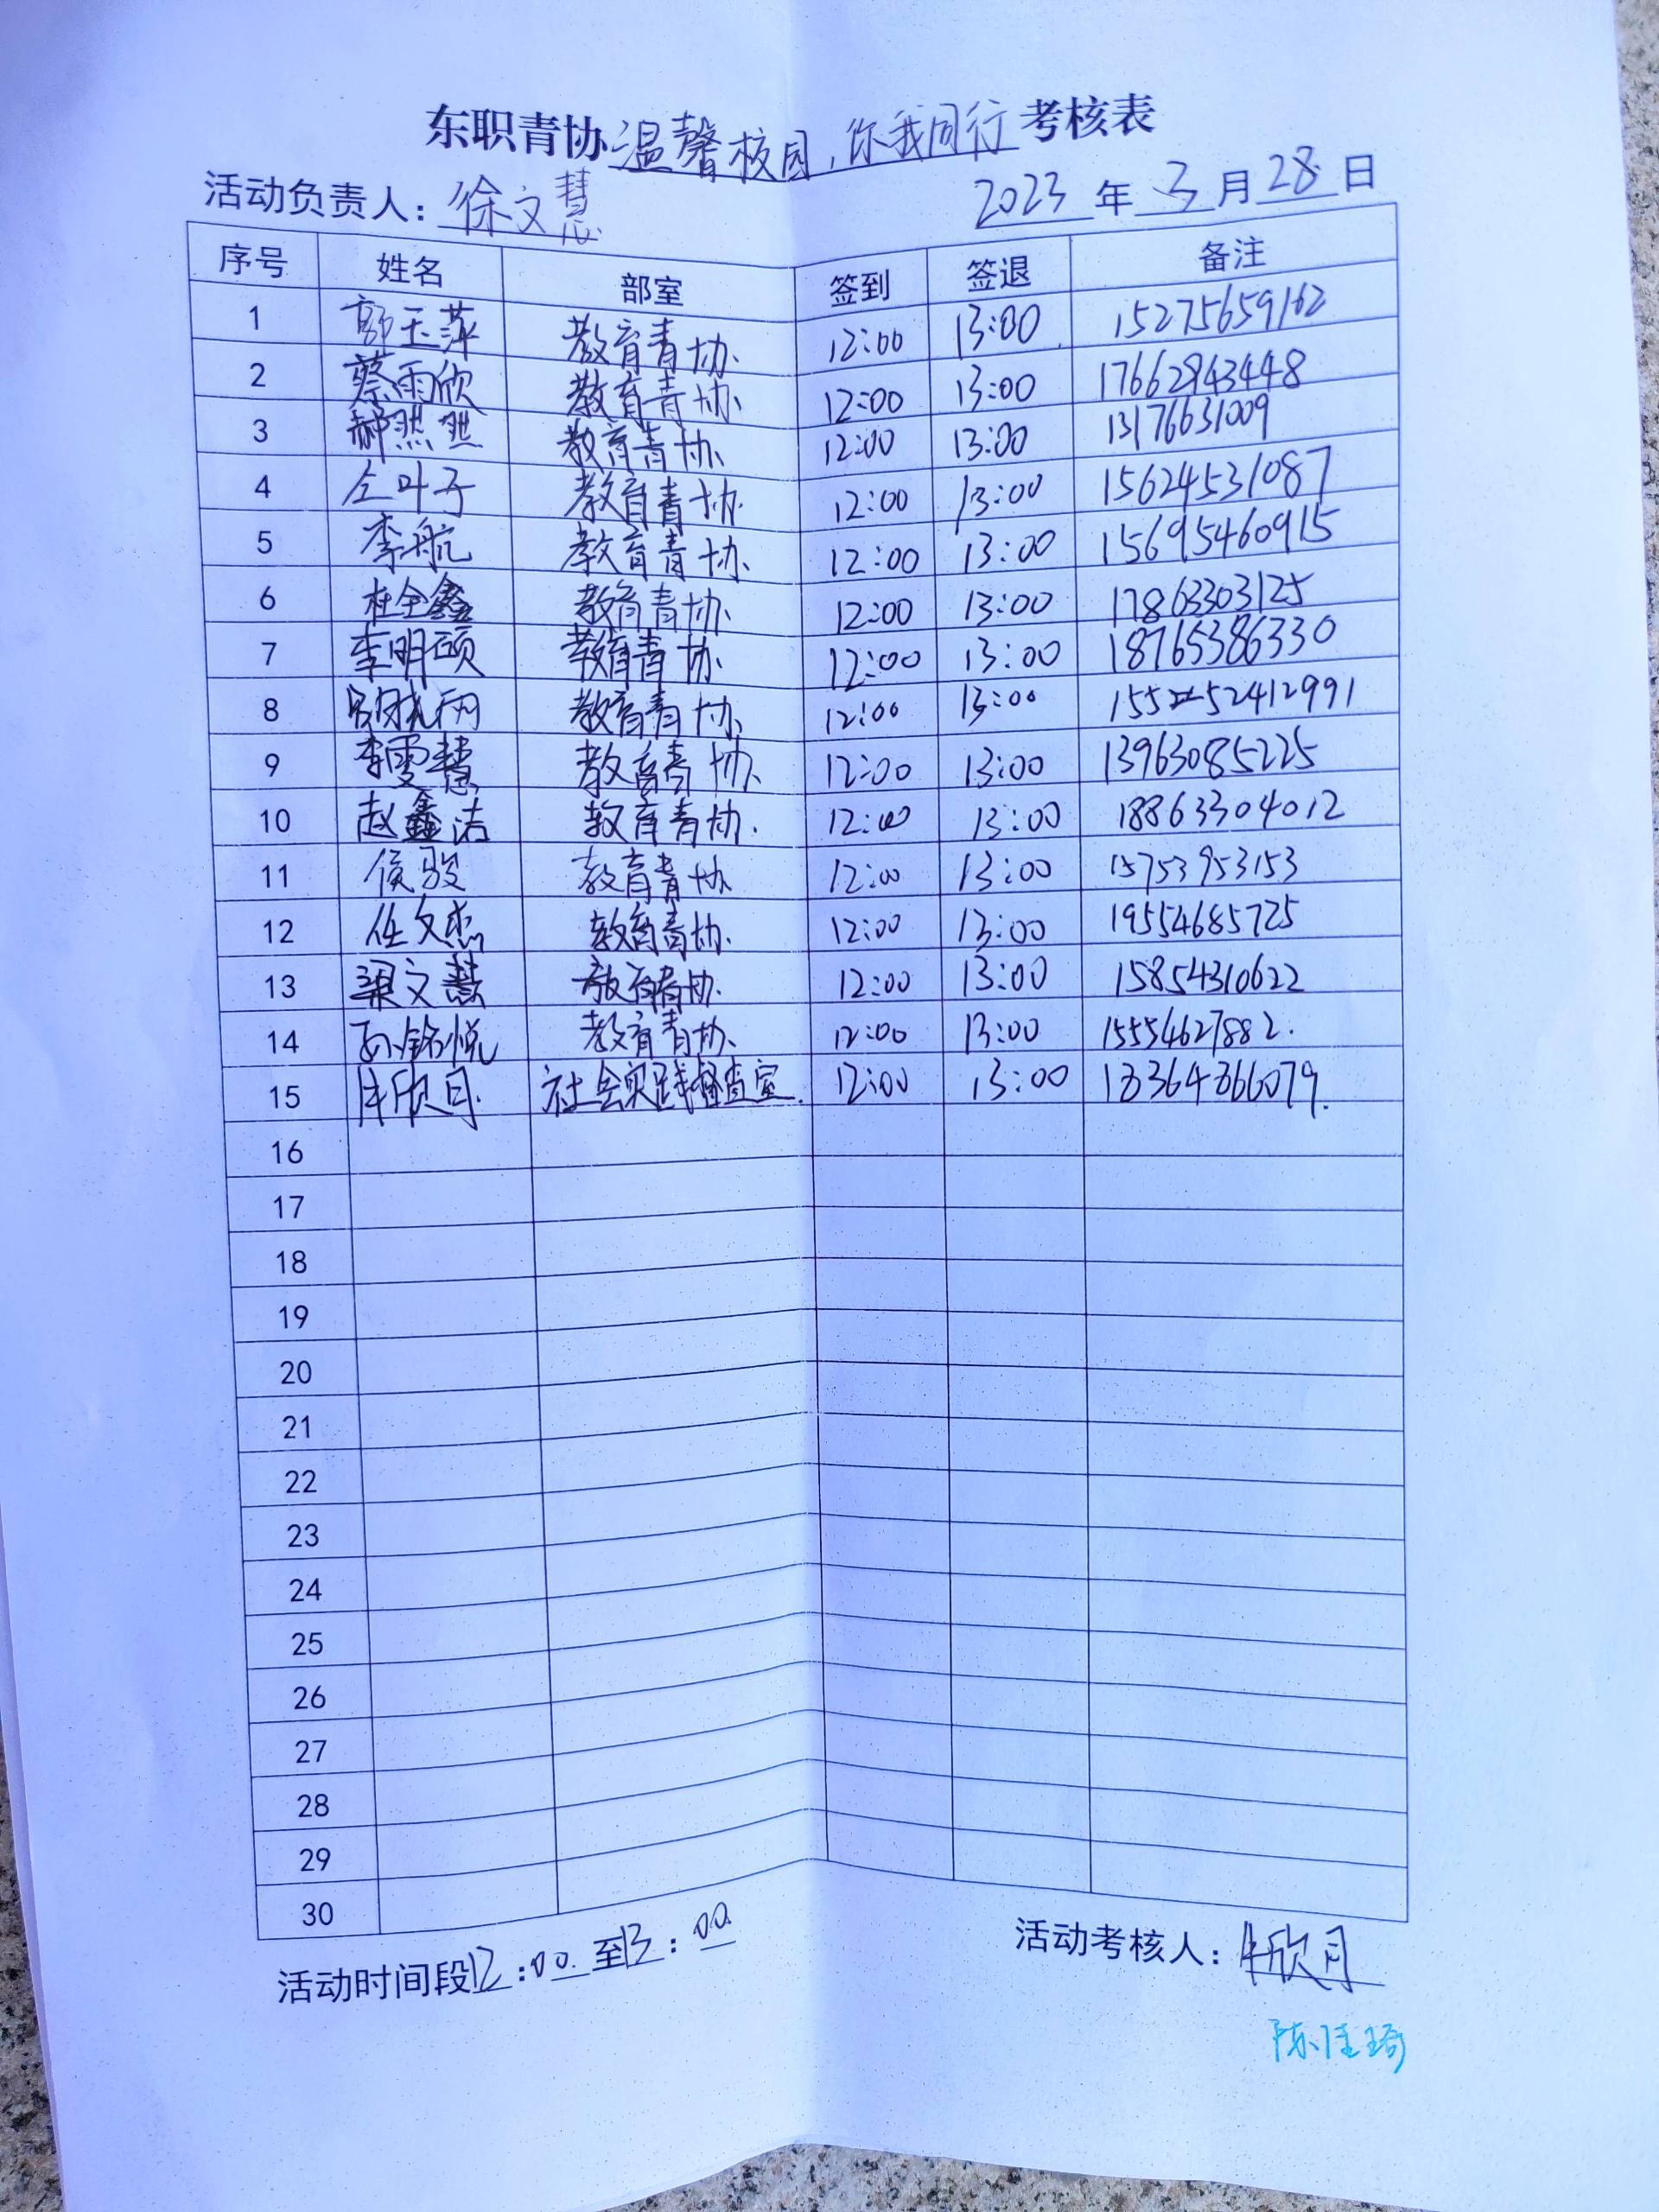 东职青协温馨校园，你我同行考核表
活动负责人：徐文慧 2023年3月28日
序号 姓名 部室 签到 签退 备注
1 郭玉萍 教育青协 12:00 13:00 15275659162
2 蔡雨欣 教育青协 12:00 13:00 17662943448
3 郝然然 教育青协 12:00 13:00 13176631009
4 仝叶子 教育青协 12:00 13:00 15624531087
5 李航 教育青协 12:00 13:00 15695460915
6 杜全鑫 教育青协 12:00 13:00 17863303125
7 李明硕 教育青协 12:00 13:00 18765386330
8 教育青协 12:00 13:00
9 李雯慧 教育青协 12:00 13:00 13963085225
10 赵鑫洁 教育青协 12:00 13:00 18863304012
11 侯骏 教育青协 12:00 13:00 15753953153
12 任文杰 教育青协 12:00 13:00 19554685725
13 梁文慧 教育青协 12:00 13:00 15854310622
14 孙铭悦 教育青协 12:00 13:00 15554627882.
15 牛欣月 社会实践督查室. 12:00 13:00
16
17
18
19
20
21
22
23
24
25
26
27
28
29
30
活动时间段12:00至13:00 活动考核人：牛欣月
陈佳琦